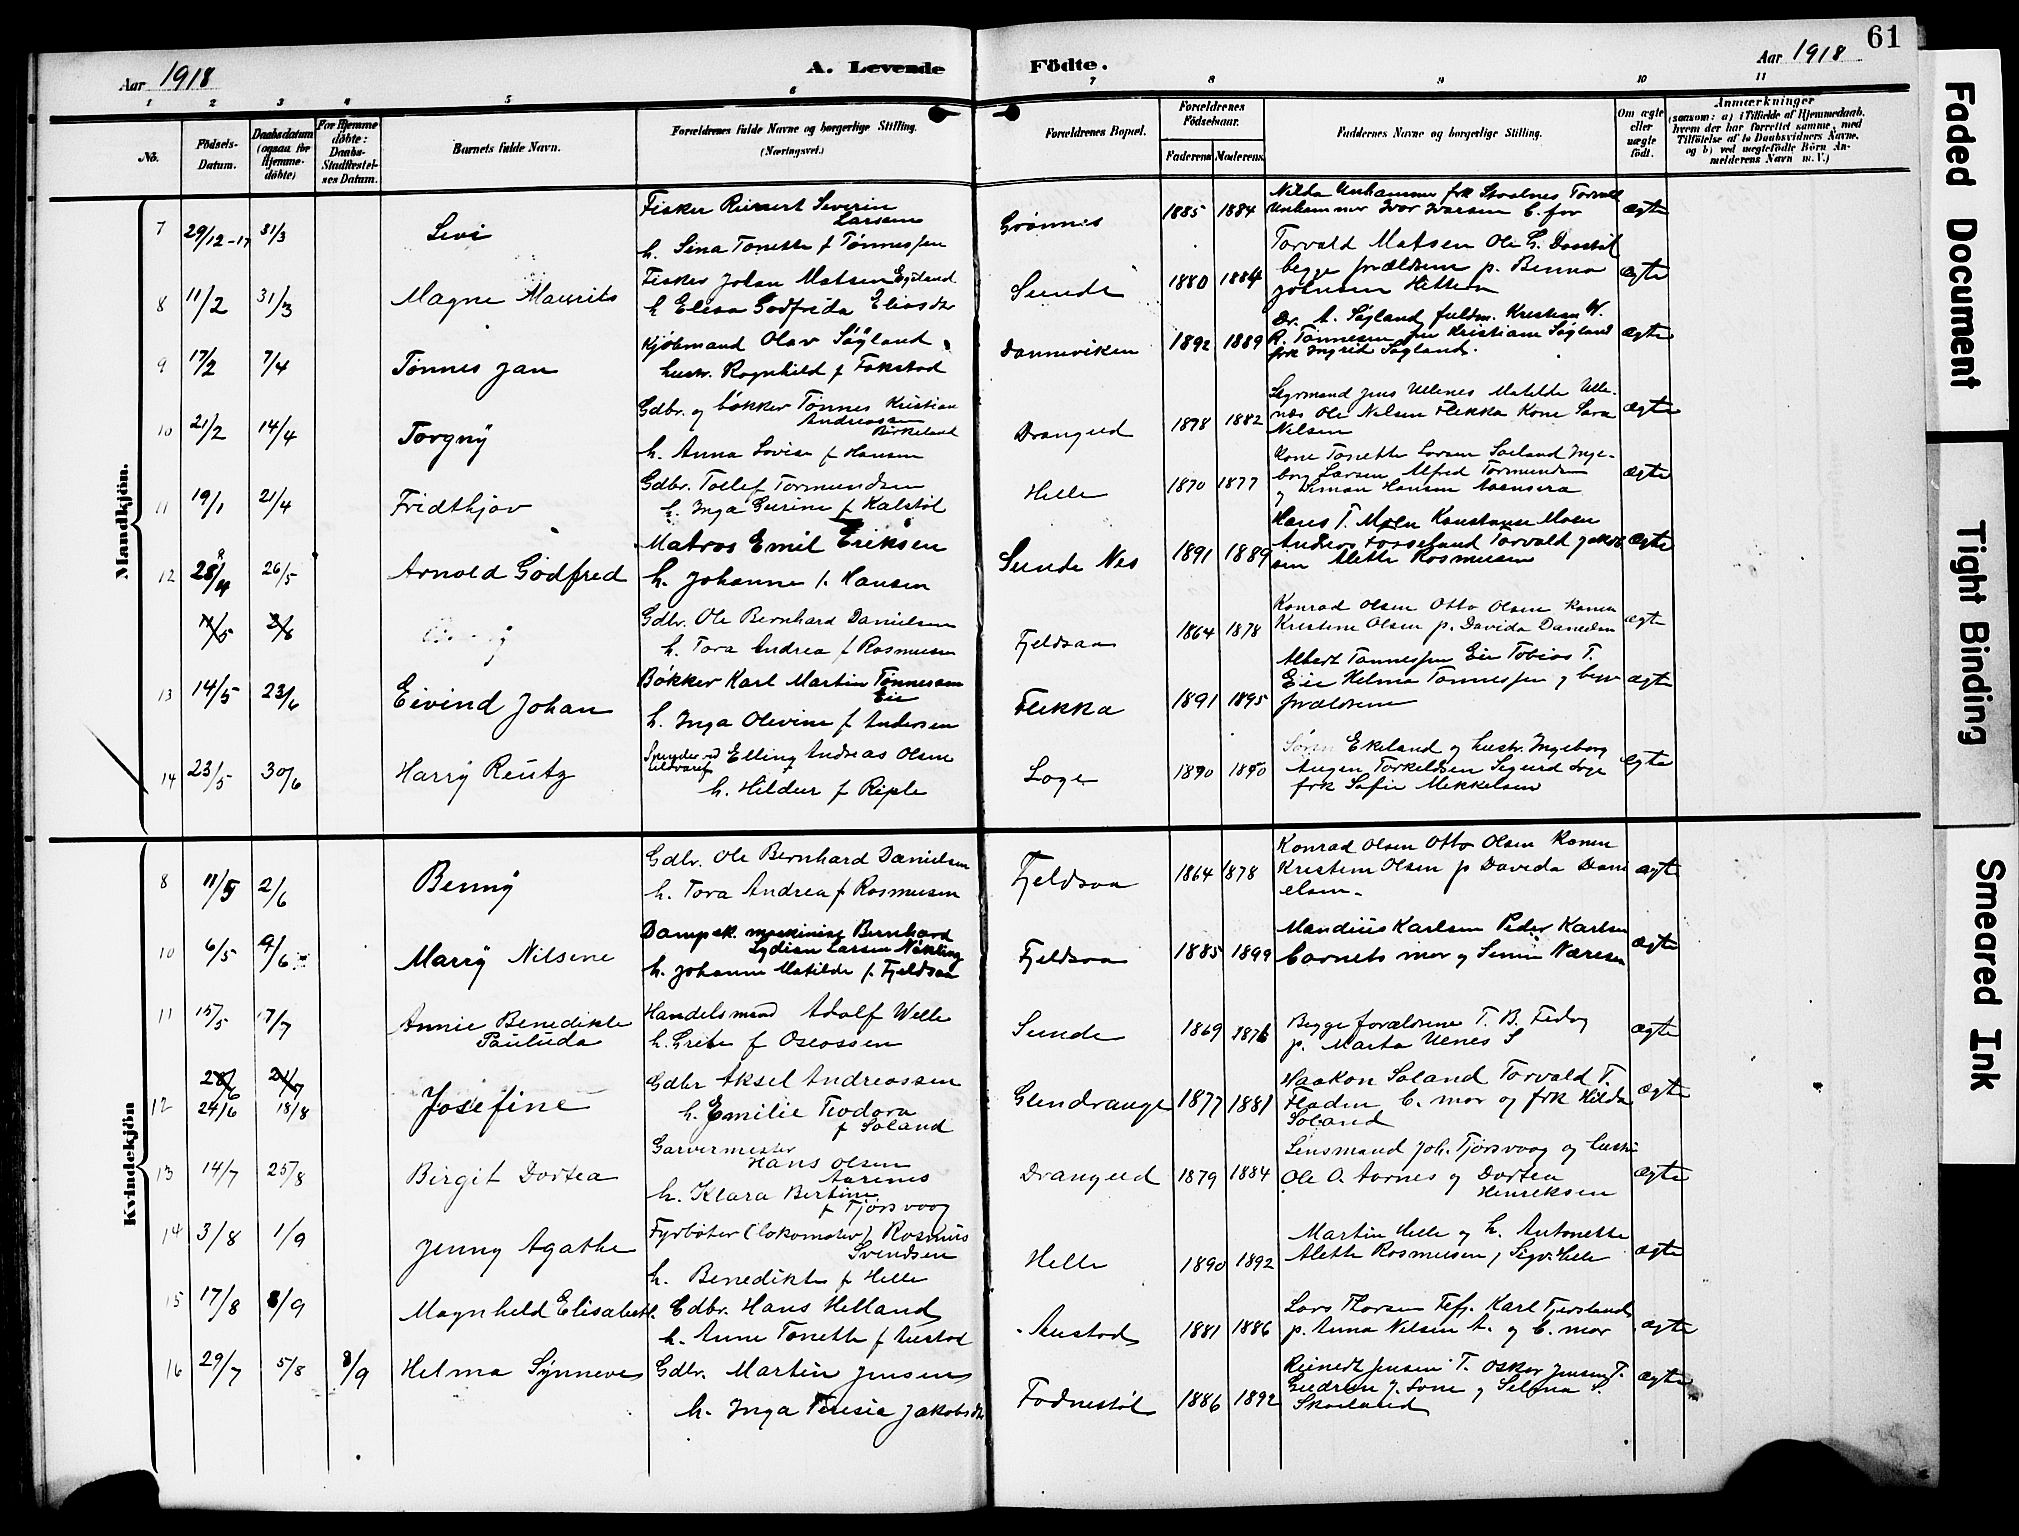 61
Aar 1918
A. Levende Födte.
Aar 1918
1 2 3 4 5 6 7 8 9 10 11
No.
Födsels-Datum.
Daabsdatum (ogsaa for Hjemme-döbte)
For Hjemme döbte: Daabs-Stadfæstelses Datum.
Barnets fulde Navn.
Forældrenes fulde Navne og borgerlige Stilling.
(Næringsvei.)
Forældrenes Bopæl.
Forældrenes Födselsaar.
Faderens Moderens
Faddernes Navne og borgerlige Stilling.
Om ægte eller uægte födt.
Anmærkninger
(saasom: a) i Tilfælde af Hjemmedaab, hvem der har forrettet samme, med Tilföielse af to Daabsvidners Navne, og b) ved uægtefödte Börn Anmelderens Navn m. V.)
Mandkjön.
7 29/12-17 31/3 Levi Fisker Reinert Severin Larsen
h. Sina Tonette f Tønnessen
1885 1884 ægte
8 11/2 31/3 Magne Maurits Fisker Johan Matsen Egeland
h Elisa Godfrida Eliasdtr
Sunde 1880 1884 Torvald Matsen Ole G.
begge forældrene p. Benna
ægte
9 17/2 7/4 Tönnes Jan Kjöbmand Olav Söyland
hustr. Ragnhild f Fokstad
Danneviken 1892 1889 Dr. A. Søyland fuldm. Kristian W.
R. Tønnesen fru Kristiane Søyland
frk Ingrid Søyland.
ægte
10 21/2 14/4 Torgny Gdbr. og bökker Tönnes Kristian Andreassen Birkeland
h. Anna Lovise f Hansen
Drangeid 1878 1882 Styrmand Jens Ullenes Matilde Ulle-
nes Ole Nilsen Flikka Kone Sara
Nilsen
ægte
11 19/1 21/4 Fridthjov Gdbr. Tollef Tormundsen
h. Inga Gurine f Kalstöl
Helle 1870 1877 Kone Tonette Larsen Soeland Inge-
borg Larsen Alfred Tormundsen
ægte
12 28/4 26/5 Arnold Godfred Matros Emil Eriksen
h. Johanne f. Hansen
Sunde Nes 1891 1889 Hans T. Moen Konstanse Moen
ægte
11/5 2/6 Gdbr. Ole Bernhard Danielsen
h. Tora Andrea f Rasmussen
Fjeldsaa 1864 1878 Konrad Olsen Otto Olsen Konen
Kristine Olsen p. Davida Danielsen
ægte
13 14/5 23/6 Eivind Johan Bökker Karl Martin Tönnessen Eie
h. Inga Olevine f Andersen
Flikka 1891 1895 Albert Tønnessen Eie Tobias T.
Eie Helma Tønnessen
forældrene
ægte
14 23/5 30/6 Harry Reutz Elling Andreas Olsen
h. Hildur f Riple
Loge 1890 1890 Ekeland og hustr. Ingeborg
Torkeldsen Sigurd Loge
frk Sofie Mikkelsen
ægte
Kvindekjön
8 11/5 2/6 Benny Gdbr. Ole Bernhard Danielsen
h. Tora Andrea f Rasmussen
Fjeldsaa 1864 1878 Konrad Olsen Otto Olsen Konen
Kristine Olsen p Davida Dani
elsen.
ægte
10 6/5 9/6 Marry Nilsine Dampsk. maskinist Bernhard
Lydian Larsen Nökling
h. Johanne Matilde f. Fjeldsaa
Fjeldsaa 1885 1899 Mandius Karlsen Peder Karlsen
barnets mor og
ægte
11 15/5 7/7 Annie Benedikte Pauluda Handelsmand Adolf Welle
h. Grete f Oseassen
Sunde 1869 1876 Begge forældrene T. B. Feda
p. Marta
ægte
28/6 21/7
12 24/6 18/8 Josefine Gdbr Aksel Andreassen
h. Emilie Teodora f Soland
Glendrange 1877 1881 Haakon Soland Torvald T.
Fladen b. mor og frk Hilda
Soland
ægte
13 14/7 25/8 Birgit Dortea Garvermester Hans Olsen Aarnes
h. Klara Bertine f Tjørsvaag
Drangeid 1879 1884 Lensmand Joh. Tjørsvaag og hustr
Ole O. Aarnes og Dortea Henriksen
ægte
14 3/8 1/9 Jenny Agathe Fyrböter (lokomotiv) Rasmus Svendsen
h. Benedikte f Helle
Helle 1890 1892 Martin Helle og h. Antonette
Alette Rasmussen, Sigv. Helle
ægte
15 17/8 8/9 Magnhild Elisabeth. Gdbr. Hans Helland
h. Anne Tonette f Austad
Austad 1881 1886 Lars Thorsen Karl
p. Anna Nilsen A. og b. mor
ægte
16 29/7 5/8 8/9 Helma Synneve Gdbr. Martin Jensen
h. Inga Teresie Jakobsdtr
Fodnestöl 1886 1892 Reinert Jensen T. Oskar Jensen T.
Gudrun J. Lone og Selma S.
Skoeland
ægte
Faded Document
Tight Binding
Smeared Ink